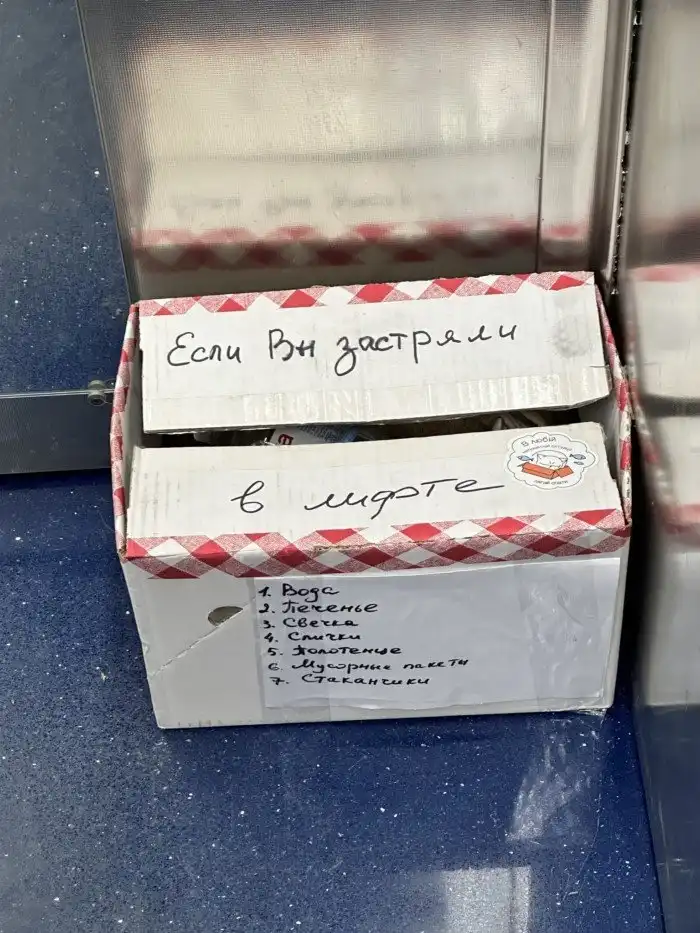 Если Вы застряли
в лифте
1. Вода
2. Печенье
3. Свечка
4. Спички
5. Полотенце
6. Мусорные пакеты
7. Стаканчики